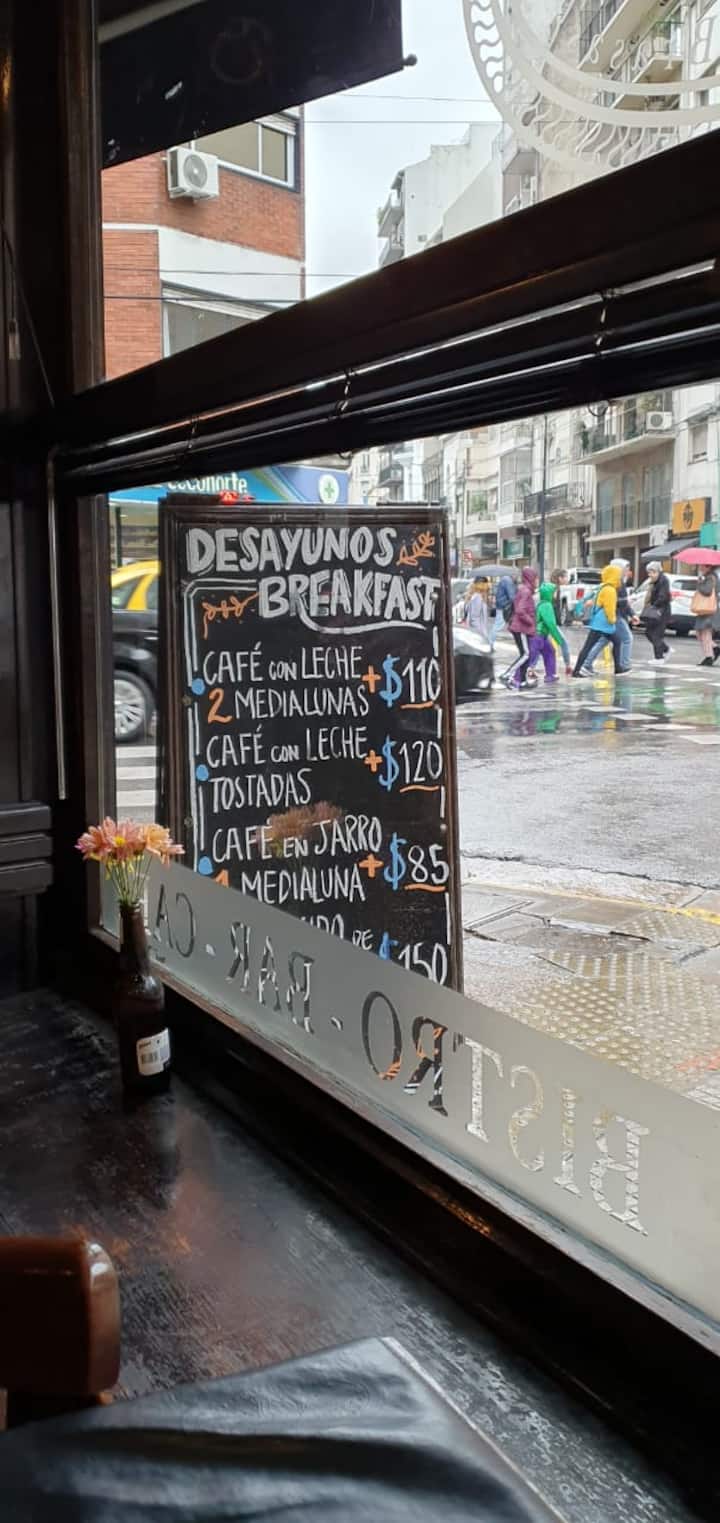 DESAYUNOS
BREAKFAST
CAFÉ CON LECHE
+ $110
2 MEDIALUNAS
CAFÉ CON LECHE
+ $120
TOSTADAS
CAFÉ EN JARRO
+ $85
1 MEDIALUNA
DE
$150
BISTRO - BAR - CA